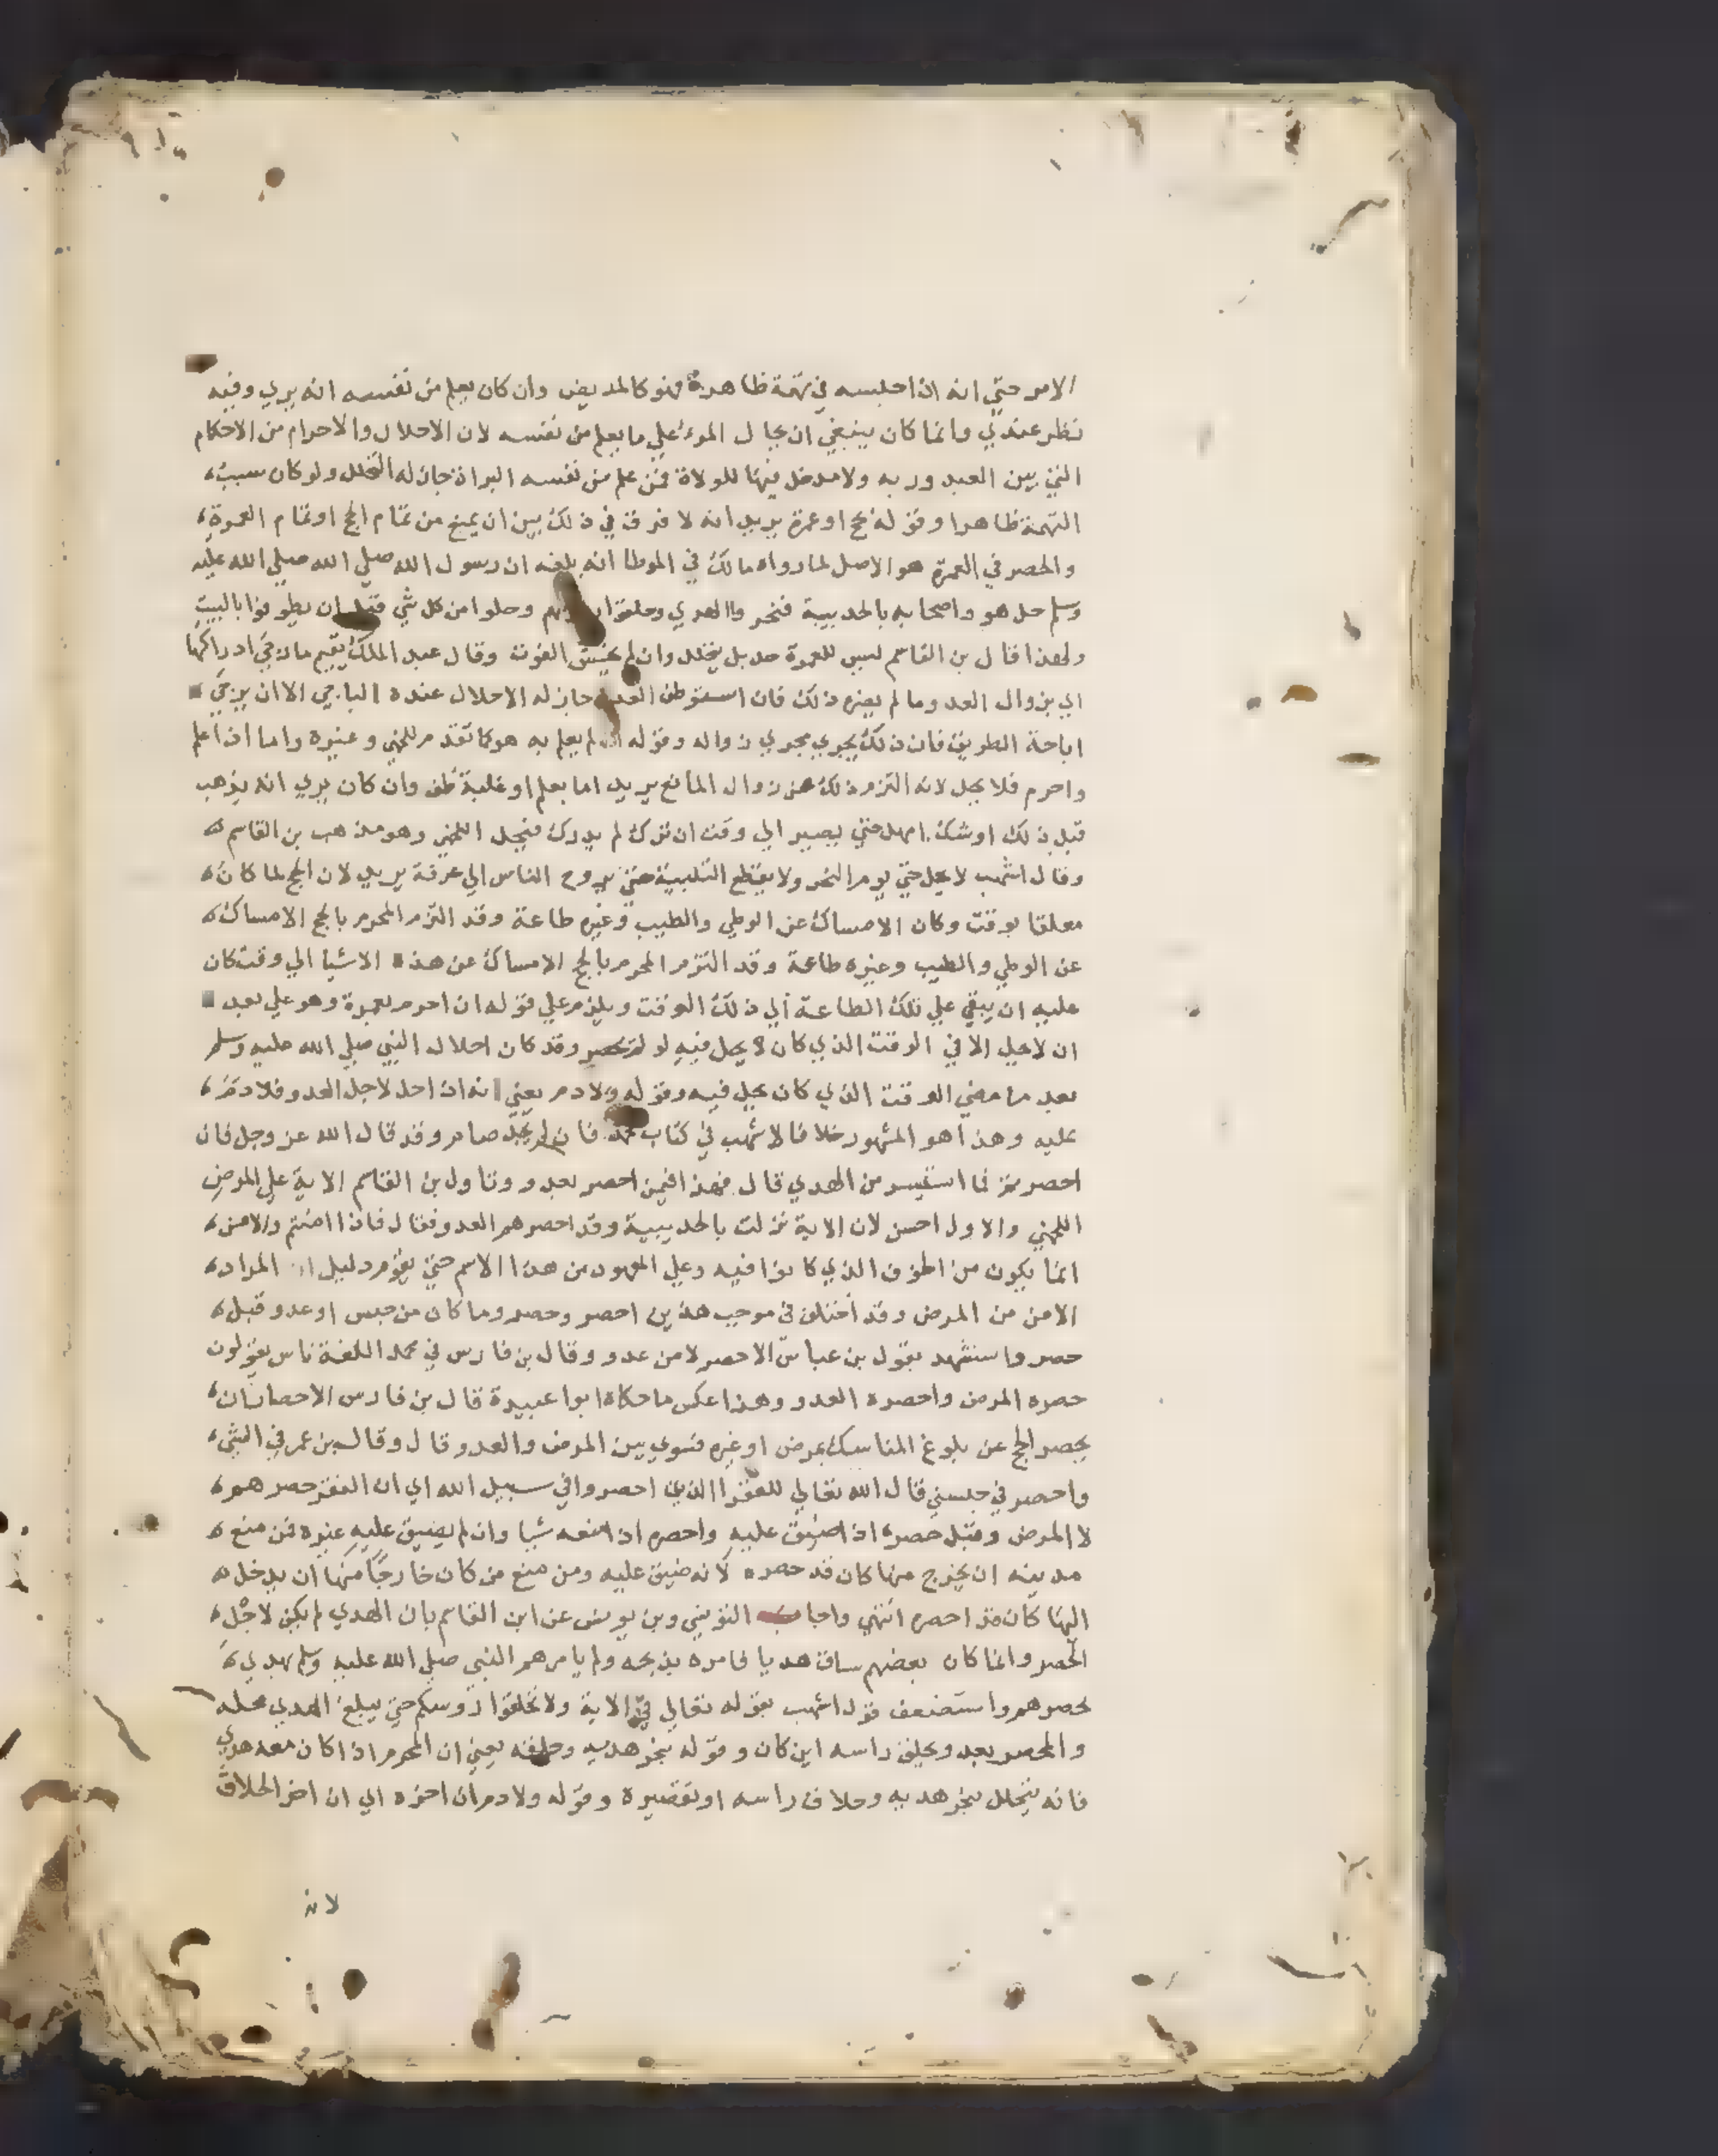 الامر حتي انه ان احلبسه في تهمة ظاهرة فهو كالمريض وان كان يعلم من نفسه انه بري وفيه
نظر عندي وانما كان ينبغي ان يحال المرء علي ما يعلم من نفسه لان الاحلال والاحرام من الاحكام
التي بين العبد وربه ولا مدخل فيها للولاة فمن علم من نفسه البراة جاز له التحلل ولو كان سبب
التهمة ظاهرا وقوله بحج او عمرة يريد انه لا فرق في ذلك بين ان يمنع من تمام الحج او تمام العمرة
والحصر في العمرة هو الاصل لما رواه مالك في الموطا انه بلغه ان رسول الله صلي الله صلي الله عليه
وسلم حل هو واصحابه بالحديبية فنحروا الهدي وحلقوا وحلوا من كل شي قبل ان يطوفوا بالبيت
ولهذا قال بن القاسم ليس للعمرة حد بل يتحلل وان لم يخش الفوت وقال عبد الملك يقيم ما رجي ادراكها
اي بزوال العدو ما لم يضره ذلك فان استوطن العدو جاز له الاحلال عنده الباجي الا ان يرجي
اباحة الطريق فان ذلك يجري مجري زواله وقوله لم يعلم به هو كما تقدم للخمي وغيره واما اذا علم
واحرم فلا يحل لانه التزم ذلك من زوال المانع يريد اما بعلم او غلبة ظن وان كان يري انه يذهب
قبل ذلك او شك امهل حتي يصير الي وقت ان ترك لم يدرك فيحل اللخمي وهو مذهب بن القاسم
وقال اشهب لا يحل حتي يوم النحر ولا يقطع التلبية حتي يروح الناس الي عرفة يريد لان الحج لما كان
معلقا بوقت وكان الامساك عن الوطي والطيب وغيره طاعة وقد التزم المحرم بالحج الامساك
عن الوطي والطيب وغيره طاعة وقد التزم المحرم بالحج الامساك عن هذه الاشيا الي وقت كان
عليه ان يبقي علي تلك الطاعة الي ذلك الوقت ويلزم علي قوله ان احرم بعمرة وهو علي بعد
ان لا يحل الا في الوقت الذي كان لا يحل فيه لو لم يحصر وقد كان احلال النبي صلي الله عليه وسلم
بعد ما مضي الوقت الذي كان يحل فيه وقوله ولا دم يعني انه اذا حل لاجل العدو فلا دم
عليه وهذا هو المشهور خلافا لاشهب في كتاب محمد فان لم يجد صام وقد قال الله عز وجل فان
احصرتم فما استيسر من الهدي قال فهذا فيمن احصر بعدو وتاول بن القاسم الاية علي المرض
اللخمي والاول احسن لان الاية نزلت بالحديبية وقد احصرهم العدو فقال فاذا امنتم والامن
انما يكون من الخوف الذي كانوا فيه وعلي المعهود من هذا الاسم حتي يقوم دليل ان المراد
الامن من المرض وقد اختلف في موجب هذين احصر وحصر وما كان من حبس او عدو قيل
حصر واستشهد بقول بن عباس الاحصر لا من عدو وقال بن فارس في مجمل اللغة ناس يقولون
حصره المرض واحصره العدو وهذا عكس ما حكاه ابوا عبيدة قال بن فارس الاحصار ان
يحصر الحج عن بلوغ المناسك بمرض او غيره فسوي بين المرض والعدو قال وقال بن عمر في الشي
واحصر في حبسني قال الله تعالي للفقرا الذين احصروا في سبيل الله اي ان الفقر حصرهم
لا المرض وقيل حصره اذا ضيق عليه واحصره اذا منعه شيا وان لم يضيق عليه غيره فمن منع
مدينه ان يخرج منها كان قد حصره لانه ضيق عليه ومن منع من كان خارجا منها ان يدخل
اليها كان قد احصره انتهي واجاب التونسي وبن يونس عن ابن القاسم بان الهدي لم يكن لاجل
الحصر وانما كان بعضهم ساق هديا فامره بذبحه ولم يامرهم النبي صلي الله عليه وسلم بهدي
لحصرهم واستضعف قول اشهب بقوله تعالي في الاية ولا تحلقوا روسكم حتي يبلغ الهدي محله
والمحصر بعدو يحلق راسه اين كان وقوله بنحر هديه وحلقه يعني ان المحرم اذا كان معه هدي
فانه يتحلل بنحر هديه وحلاق راسه او تقصيره وقوله ولا دم ان اخره اي ان اخر الحلاق
لانه